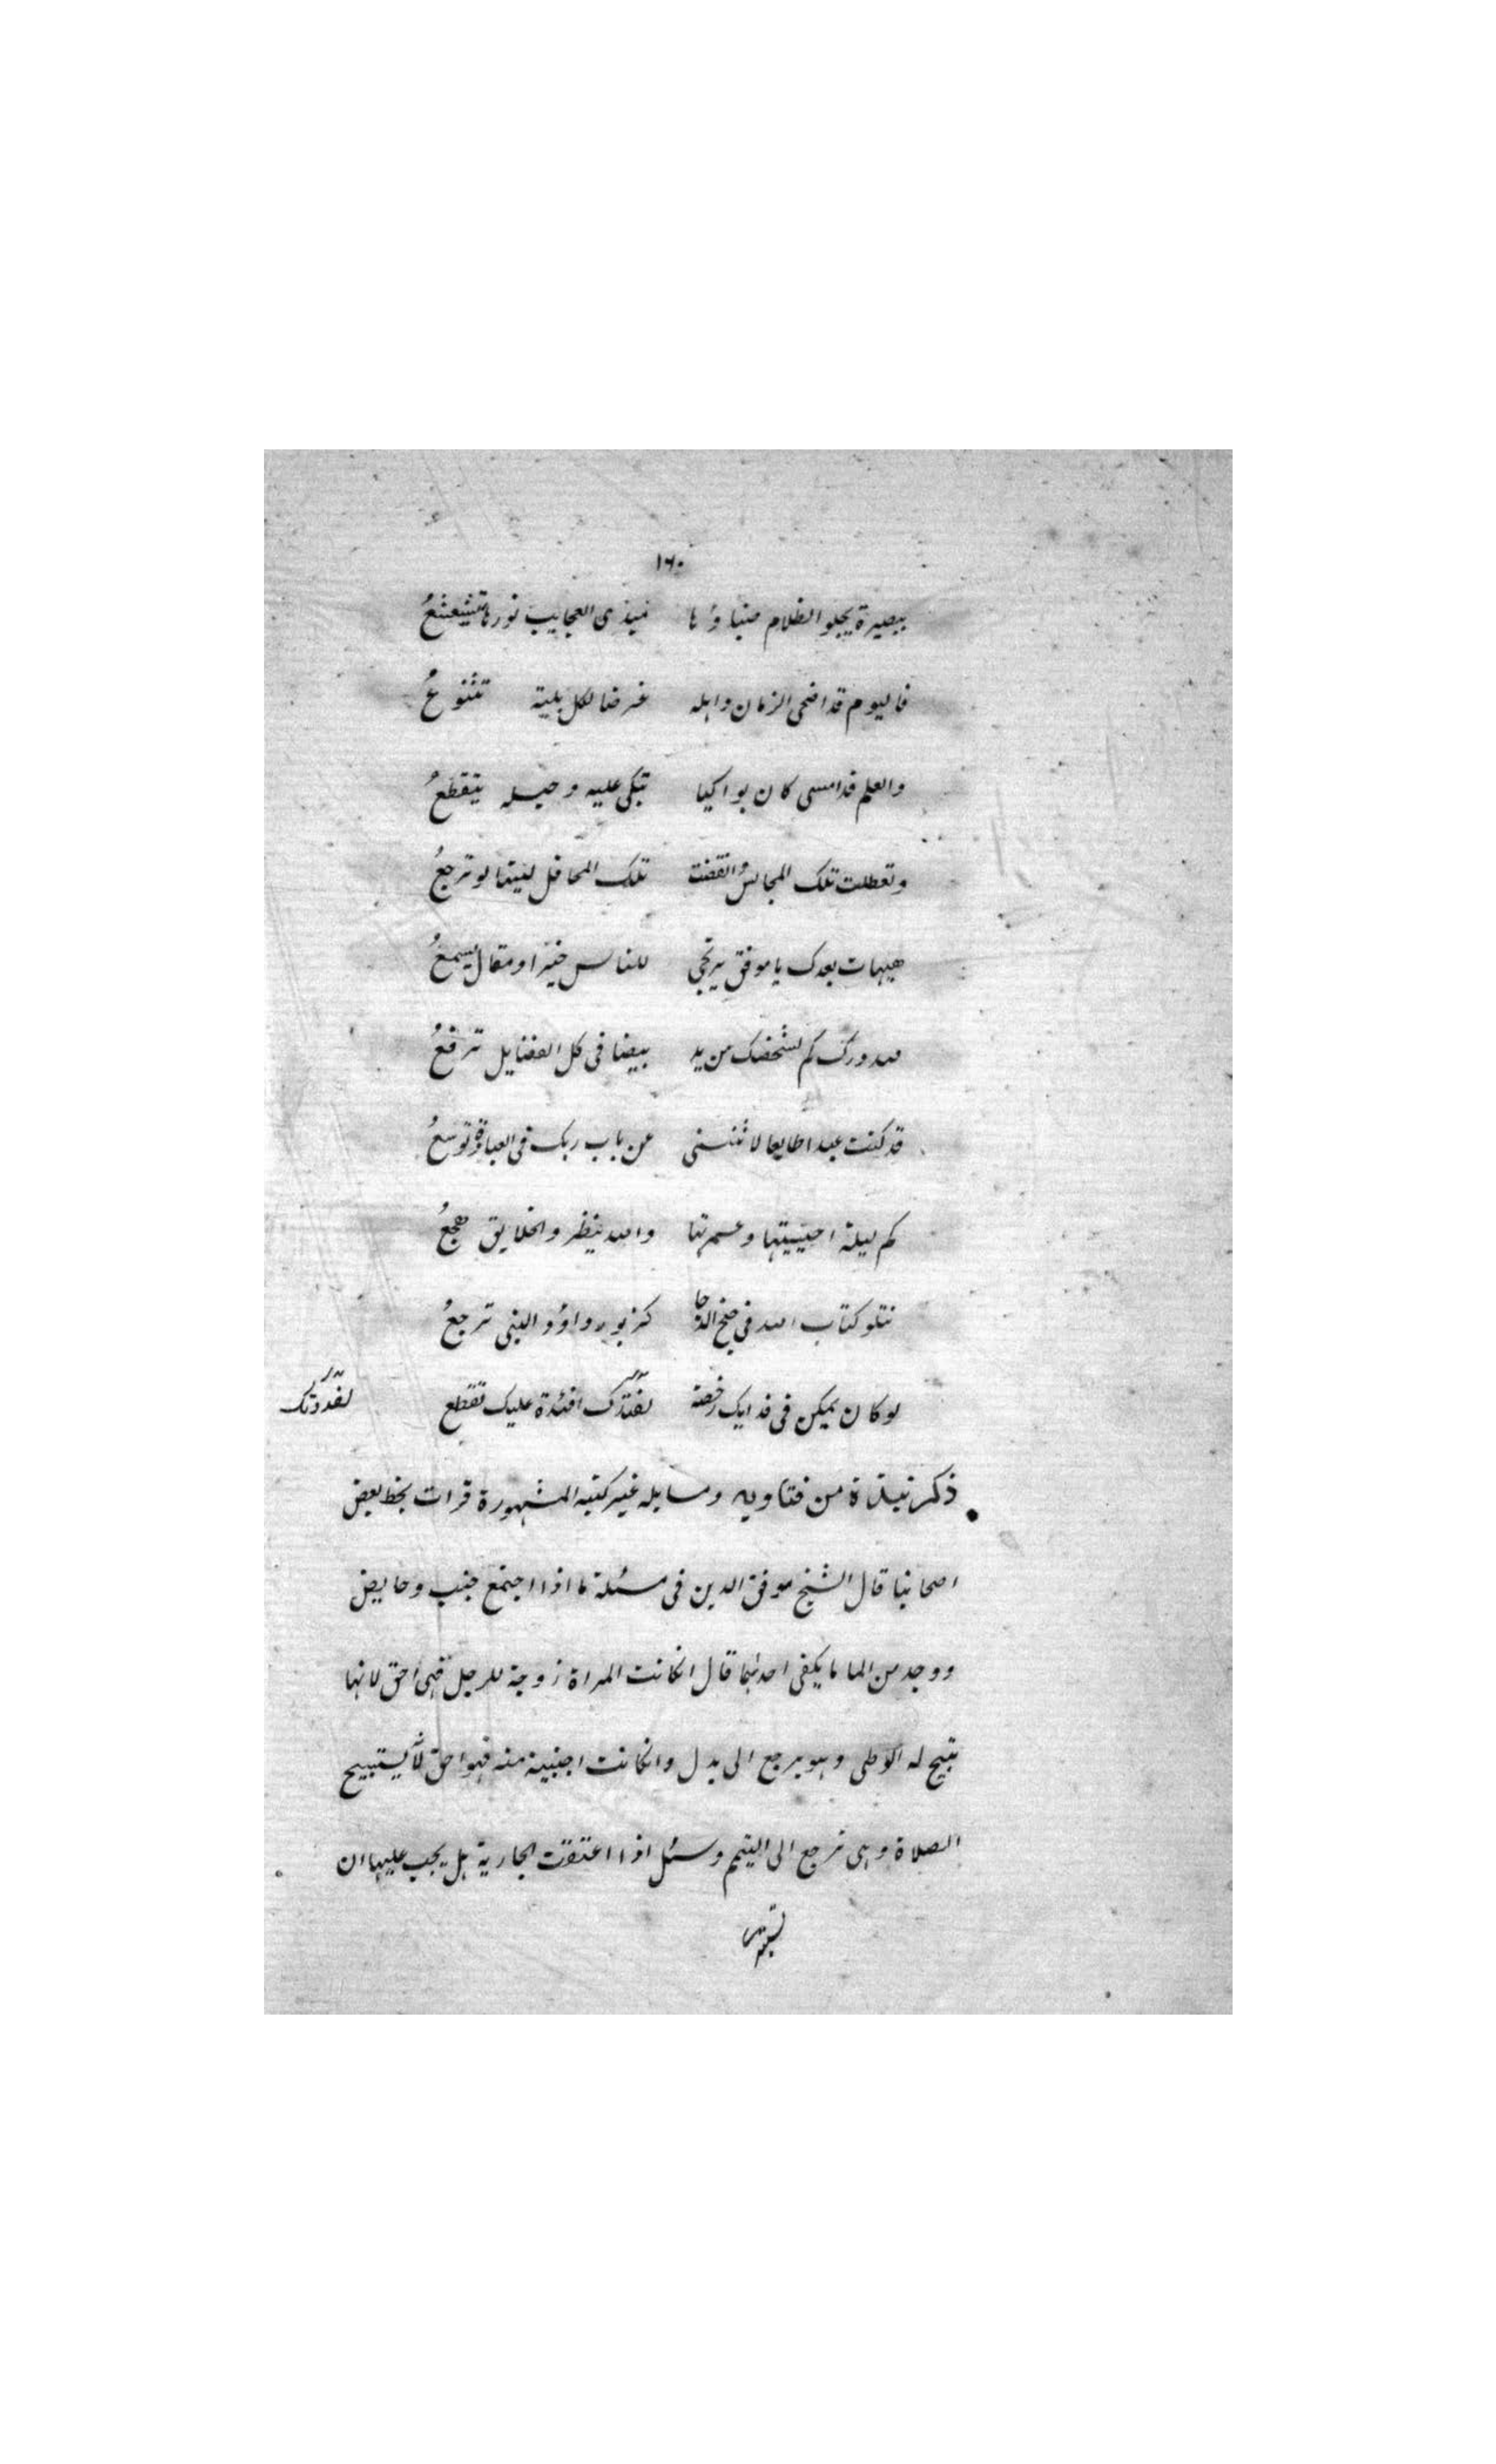 ١٦٠
ببصيرة يجلو الظلام ضياؤها فيذى العجايب نورها تتشعشعُ
فاليوم قد اضحى الزمان واهله غرضا لكل بلية تتنوعُ
والعلم قد امسى كان بواكيا تبكى عليه وحبله يتقطعُ
وتعطلت تلك المجالس وانقضت تلك المحافل ليتها لو ترجعُ
هيهات بعدك يا موفق يرتجى للناس خير او مقال يسمعُ
لله درك كم لشخصك من يد بيضا فى كل الفضايل ترفعُ
قد كنت عبدا طايعا لا تنثنى عن باب ربك فى العبادة توسعُ
كم ليلة احييتها وعمرتها والله ينظر والخلايق هجعُ
تتلو كتاب الله فى جنح الدجا كزبور داؤد النبى ترجعُ
لو كان يمكن فى فدايك رخصة لفدتك افئدة عليك تقطع
ذكر نبذة من فتاويه ومسايله غير كتبه المشهورة قرات بخط بعض
اصحابنا قال الشيخ موفق الدين فى مسئلة ما اذا اجتمع جنب وحايض
ووجد من الما ما يكفى احدهما قال انكانت المراة زوجة للرجل فهى احق لانها
تبيح له الوطى وهو يرجع الى بدل وانكانت اجنبية منه فهو احق لانه يستبيح
الصلاة وهى ترجع الى التيمم وسئل اذا اعتقت الجارية هل يجب عليها ان